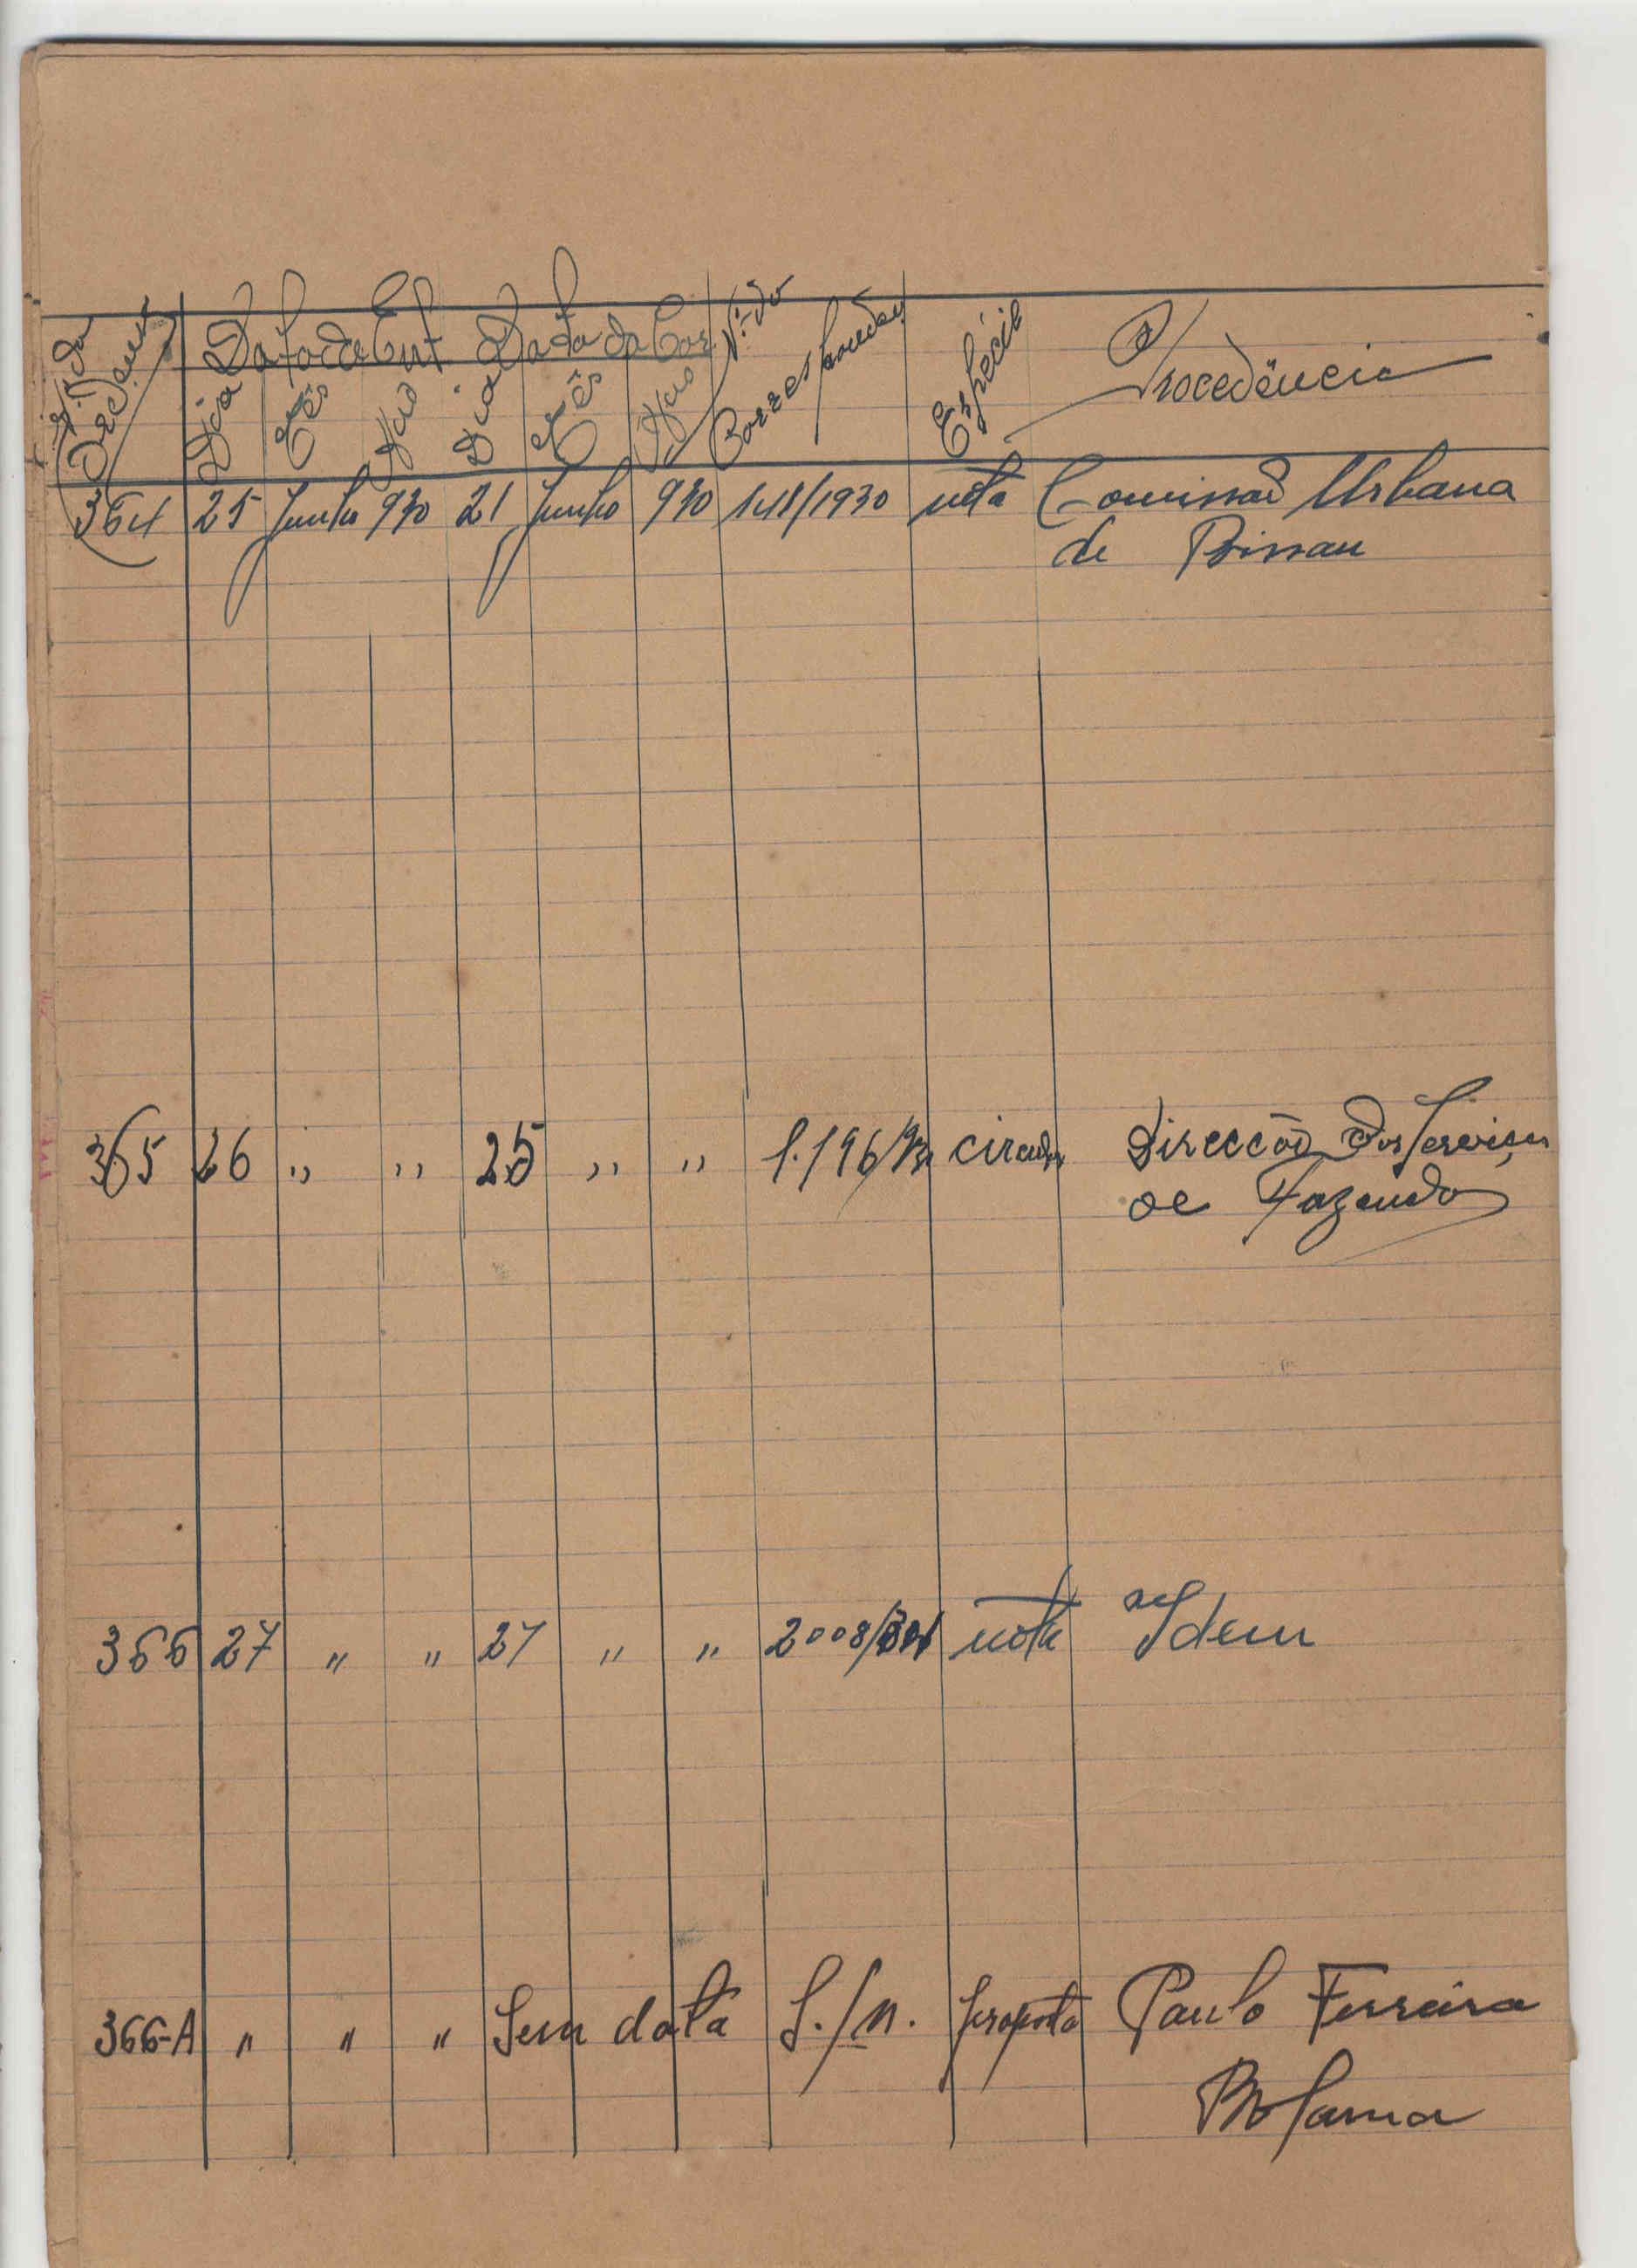 Nº da Ordem Data de Ent. Data da Cor. Nº do Correspondên Espécie Procedência
Dia Mês Ano Dia Mês Ano
364 25 Junho 930 21 Junho 930 /1930 nota Comissão Urbana
de Bissau
365 26 ,, ,, 25 ,, ,, circular Direcção dos Serviços
de Fazenda
366 27 " " 27 " " nota Idem
366-A " " " Sem data S./n. proposta Paulo Ferreira
Bolama